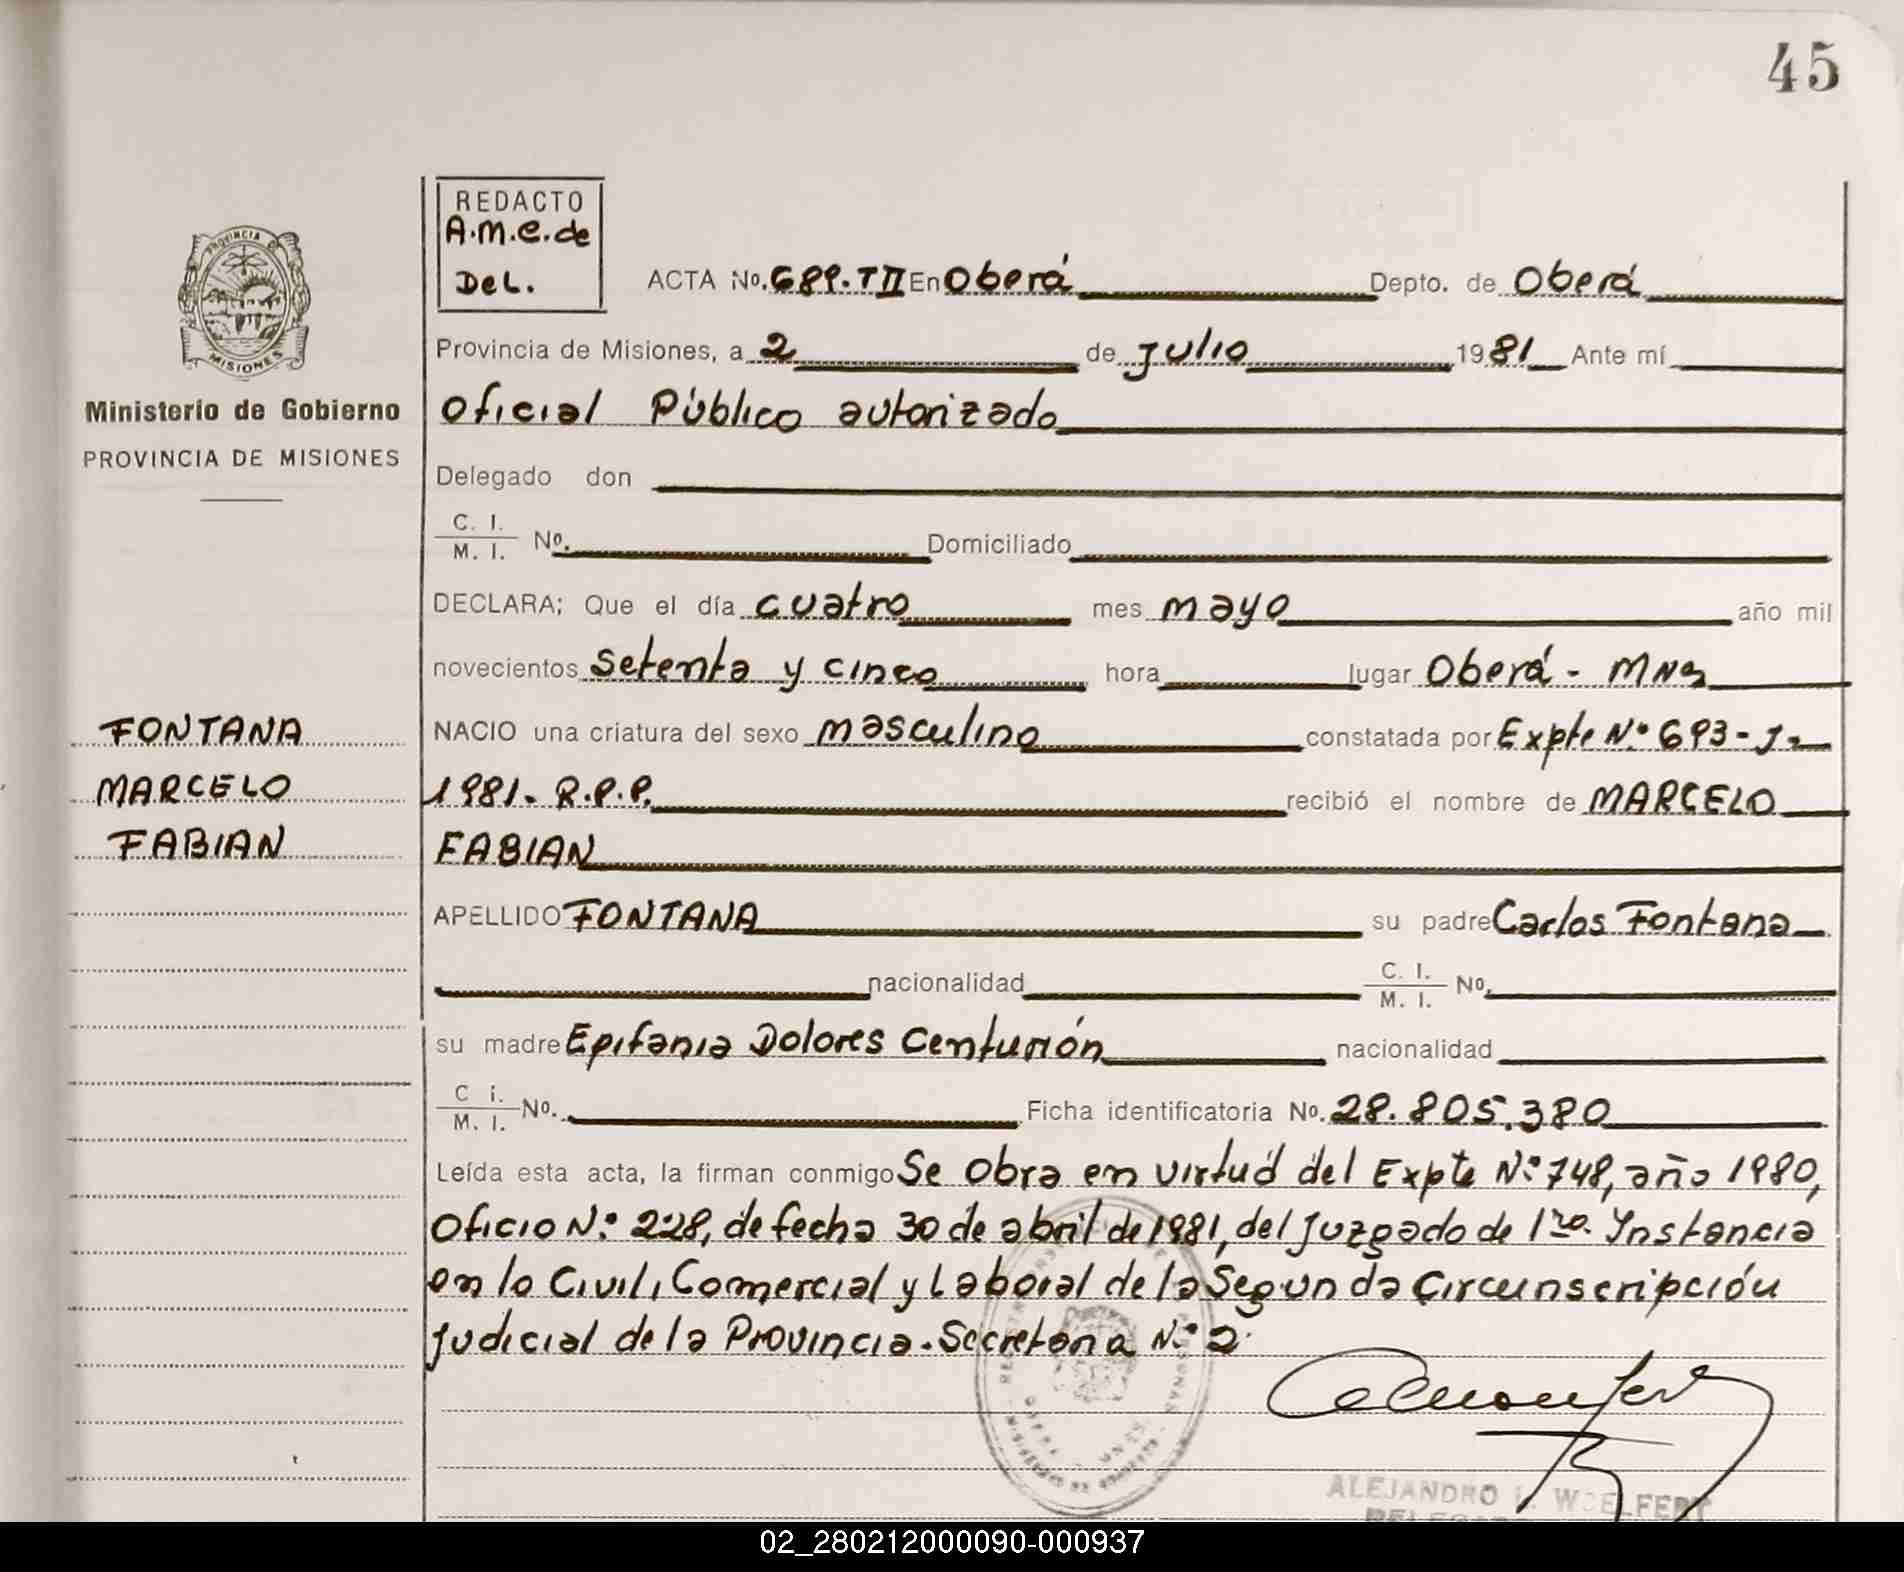 45
REDACTO
A.M.C. de
DeL.
ACTA No. 689.TII En Oberá Depto. de Oberá
Provincia de Misiones, a 2 de Julio 1981 Ante mí
Oficial Público autorizado
Ministerio de Gobierno
PROVINCIA DE MISIONES
Delegado don
C. I.
M. I. No. Domiciliado
DECLARA; Que el día cuatro mes mayo año mil
novecientos setenta y cinco hora lugar Oberá - Mns
FONTANA
MARCELO
FABIAN
NACIO una criatura del sexo masculino constatada por Expte Nº 693-J-
1981. R.P.P. recibió el nombre de MARCELO
FABIAN
APELLIDO FONTANA su padre Carlos Fontana
nacionalidad C. I.
M. I. No.
su madre Epifania Dolores Centurión nacionalidad
C i.
M. I. No. Ficha identificatoria No. 28.805.380
Leída esta acta, la firman conmigo Se Obra en virtud del Expte Nº 748, año 1980,
Oficio Nº 228, de fecha 30 de abril de 1981, del Juzgado de 1ra. Instancia
en lo Civil, Comercial y Laboral de la Segunda Circunscripción
Judicial de la Provincia. Secretaria Nº 2.
ALEJANDRO WOELFERT
02_280212000090-000937